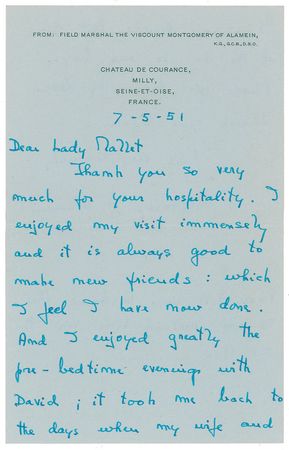 FROM: FIELD MARSHAL THE VISCOUNT MONTGOMERY OF ALAMEIN,
K.G., G.C.B., D.S.O.
CHATEAU DE COURANCE,
MILLY,
SEINE-ET-OISE,
FRANCE.
7-5-51
Dear Lady Mallet
Thank you so very
much for your hospitality. I
enjoyed my visit immensely
and it is always good to
make new friends: which
I feel I have now done.
And I enjoyed greatly the
pre-bedtime evenings with
David; it took me back to
the days when my wife and